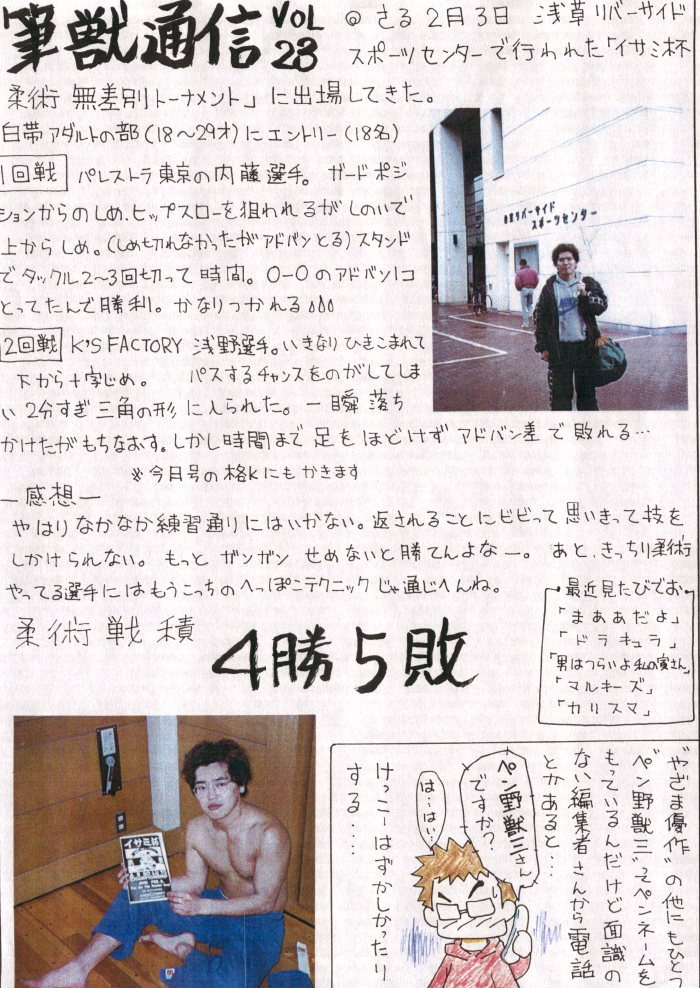 筆獣通信 VOL 28
@ さる2月3日 浅草リバーサイド
スポーツセンターで行われた「イサミ杯
柔術 無差別トーナメント」に出場してきた。
白帯アダルトの部(18〜29才)にエントリー(18名)
1回戦 パレストラ東京の内藤選手。ガードポジ
ションからのしめ、ヒップスローを狙われるがしのいで
上からしめ。(しめ切れなかったがアドバンとる)スタンド
でタックル2〜3回切って時間。0-0のアドバン1コ
とってたんで勝利。かなりつかれる
2回戦 K'S FACTORY 浅野選手。いきなりひきこまれて
下から十字じめ。 パスするチャンスをのがしてしま
い2分すぎ三角の形に入られた。一瞬落ち
かけたがもちなおす。しかし時間まで足をほどけずアドバン差で敗れる…
※今日号の格Kにもかきます
浅草リバーサイド
スポーツセンター
—感想—
やはりなかなか練習通りにはいかない。返されることにビビって思いきって技を
しかけられない。もっとガンガンせめないと勝てんよなー。あと、きっちり柔術
やってる選手にはもうこっちのへっぽこテクニックじゃ通じへんね。
最近見たびでお
「まあだよ」
「ドラキュラ」
「男はつらいよ私の寅さん」
「マルキーズ」
「カリスマ」
柔術戦積
4勝5敗
イサミ杯
"やざま優作"の他にもひとつ
"ペン野獣三"てペンネームを
もっているんだけど面識の
ない編集者さんから電話
とかあると…
ペン野獣三さん
ですか?
は…はい
けっこーはずかしかったり
する……